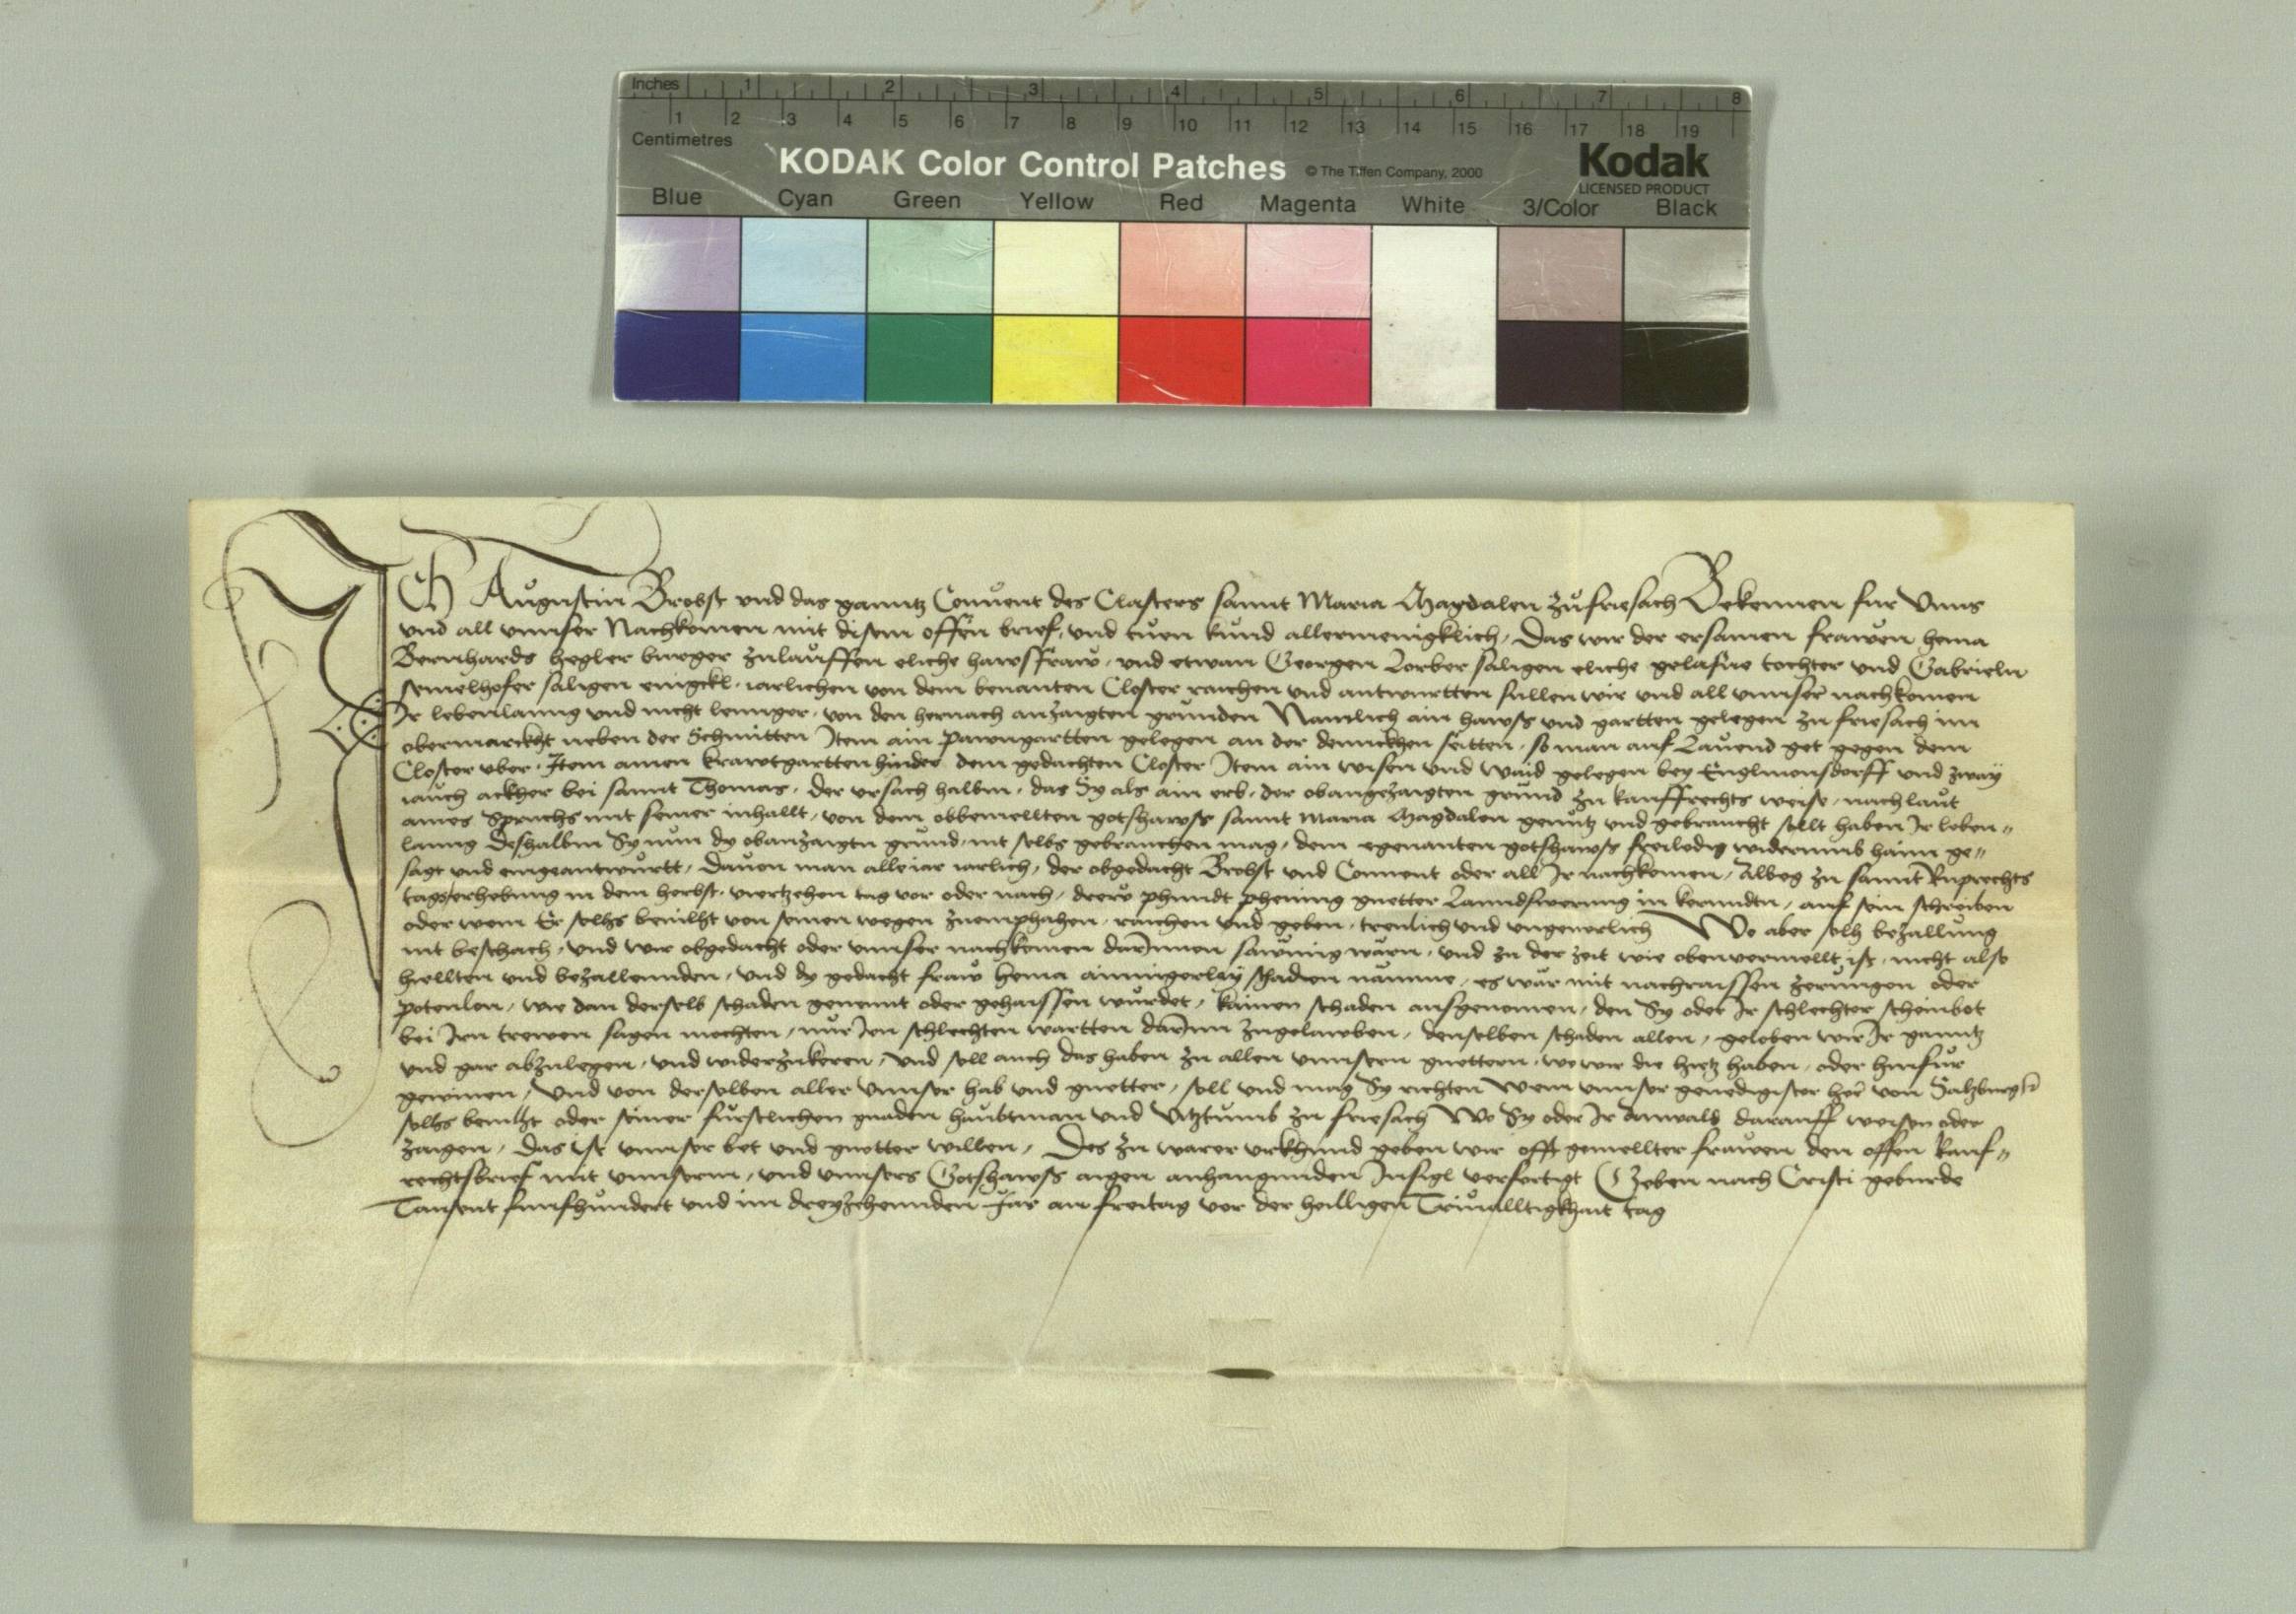 Inches 1 2 3 4 5 6 7 8
1 2 3 4 5 6 7 8 9 10 11 12 13 14 15 16 17 18 19
Centimetres
KODAK Color Control Patches © The Tiffen Company, 2000 Kodak
LICENSED PRODUCT
Blue Cyan Green Yellow Red Magenta White 3/Color Black
ICH Augustin Brobst vnd das ganntz Conuent des Closters sannt Maria Magdalen zu friesach Bekennen fur Vnns
vnd all vnnser Nachkomen mit disem offen brief, vnd tuen kund allermenigklich, Das wir der ersamen frawen hema
Bernhards Zegler burger zulauffen eliche hawsfraw, vnd etwan Georgen Lorber saligen eliche gelasne tochter vnd Gabrieln
semelhofer saligen enigckl, iarlichen von dem benanten Closter raichen vnd antwurtten sullen wir vnd all vnnser nachkomen
Ir lebenlanng vnd nicht lennger, von den hernach anzaigten grunden Namlich ain hawss vnd gartten gelegen zu friesach im
obermarckht neben der Schmitten Item ain pawngartten gelegen an der sêitten, so man auf Lauend get gegen dem
Closter vber, Item ainen krawtgartten hinder dem gedachten Closter Item ain wisen vnd waid gelegen bey Englmonsdorff vnd zway
iauch ackher bei sannt Thomas, der vrsach halbm, das Sy als ain erb, der obangezaigten grund zu kauffrechts weise, nach laut
aines Spruchs mit seiner inhallt, von dem obbemellten gotshawss sannt Maria Magdalen genutz vnd gebraucht sollt haben Ir leben„
lanng Deshalbm Sy nun dy obanzaigtn grund, nit selbs gebrauchen mag, dem egenanten gotshawss freiledig widerumb haim ge„
sagt vnd eingeantwurtt, Dauon man alle iar iarlich, der obgedacht Brobst vnd Conuent oder all Ir nachkomen, Albeg zu sannt Ruprechts
tag erhebung in dem herbst, viertzehen tag vor oder nach, drew phundt phening guetter Lanndswerung in kernndtn, auf sein schreiben
oder wem Er solhs beuilht von seinen wegen zuemphahen, raichen vnd geben, treulich vnd vngeuerlich Wo aber solh bezallung
nit beschach, vnd wir obgedacht oder vnnser nachkomen darInnen sawmig wärn, vnd zu der zeit wie oben vermellt ist, nicht also
hiellten vnd bezallennden, vnd dy gedacht fraw hema ainnigerlay schaden namme, es wär mit nachraissen zerungen oder
potenlon, wie dan derselb schaden genennt oder gehaissen wurdet, kainen schaden ausgenomen, den Sy oder Ir schlechter scheinbot
bei Irn trewen sagen mochten, nur Irn schlechten wartten darInn zugelawben, denselben schaden allen, geloben wir Ir ganntz
vnd gar abzulegen, vnd widerzukeren, vnd soll auch das haben zu allen vnnsern guettern, wo wir die hietz haben, oder hinfur
gewinen, Vnd von derselben aller vnnser hab vnd guetter, soll vnd mag Sy richten wem vnnser genedigister her von Salzburg
solhs beuilht oder seiner furstlichen gnaden haubtman vnd Vitztumb zu friesach Wo Sy oder Ir Anwald darauff weisen oder
zaigen, Das ist vnnser bet vnd guetter willen, Des zu warer vrkhund geben wir offt gemellter frawen den offen kauf„
rechtsbrief mit vnnserm, vnd vnnsers Gotshawss aigen anhangunden Insigl verfertigt Geben nach Cristi geburde
Tausent funfhundert vnd im dreyzehennden Jar an freitag vor der heilligen Triualltigkhait tag